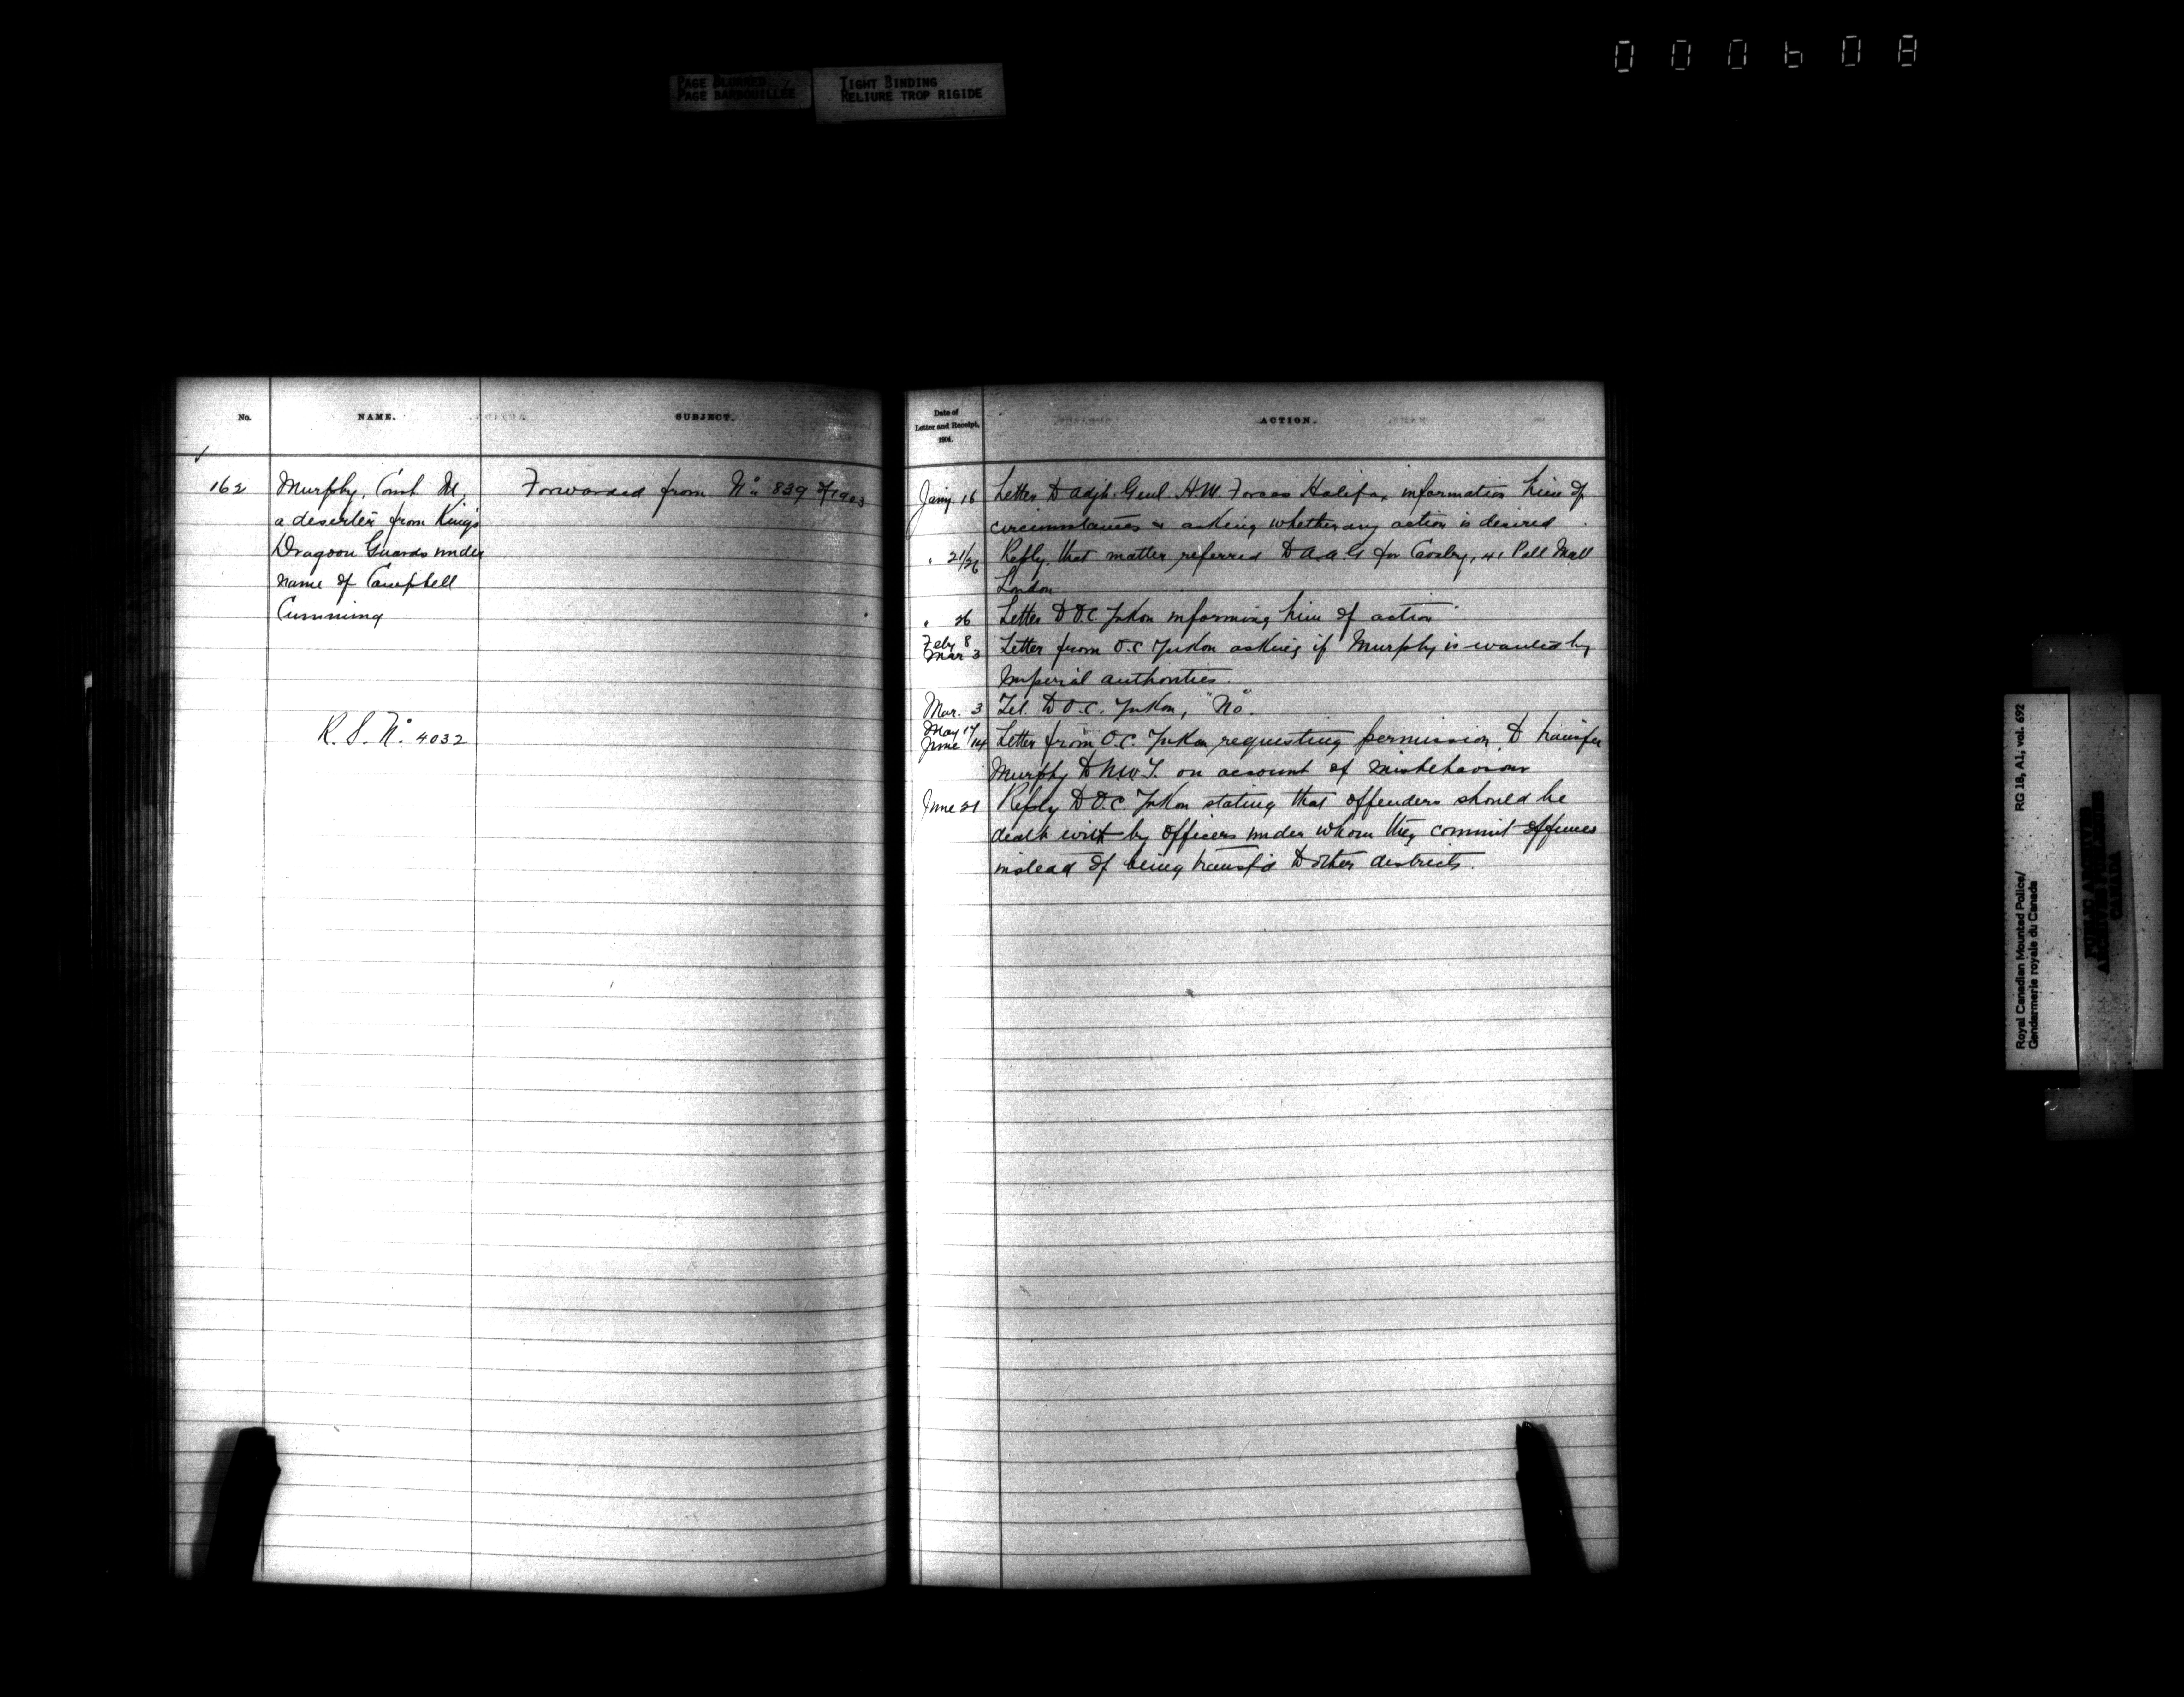 000608
PAGE BLURRED
PAGE BARBOUILLEE
TIGHT BINDING
RELIURE TROP RIGIDE
No.
NAME.
SUBJECT.
162
Murphy, Const M,
a deserter from King's
Dragoon Guards under
name of Campbell
Cumming
R. S. No. 4032
Forwarded from No. 839 of 1903
Date of
Letter and Receipt,
1904.
ACTION.
Jany. 16 Letter to Adjt. Genl. H.M. Forces Halifax information him of
circumstances & asking whether any action is desired.
" 21/26 Reply, that matter referred to A.A.G for Cavalry, 41 Pall Mall
London
" 26 Letter to O.C. Yukon informing him of action
Feby 8
Mar 3 Letter from O.C Yukon asking if Murphy is wanted by
Imperial authorities.
Mar. 3 Tel. to O.C. Yukon, "No".
May 17
June 14 Letter from O.C. Yukon requesting permission to transfer
Murphy to N.W.T. on account of misbehaviour
June 21 Reply to O.C. Yukon stating that offenders should be
dealt with by officers under whom they commit offences
instead of being transf'd to other districts.
Royal Canadian Mounted Police/
Gendarmerie royale du Canada
RG 18, A1, vol. 692
PUBLIC ARCHIVES
ARCHIVES PUBLIQUES
CANADA